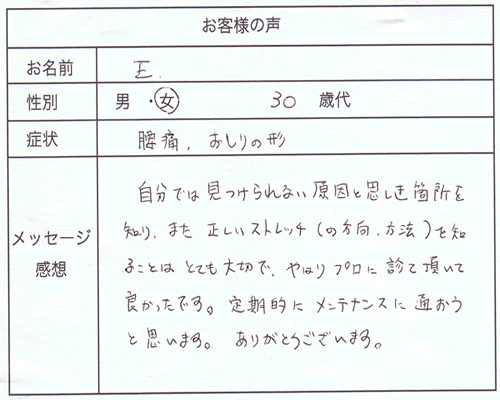 お客様の声
お名前 E.
性別 男・女 30 歳代
症状 腰痛, おしりの形
メッセージ
感想
自分では見つけられない原因と思しき箇所を
知り、また正しいストレッチ(の方向,方法)を知
ることはとても大切で、やはりプロに診て頂いて
良かったです。定期的にメンテナンスに通おう
と思います。ありがとうございます。